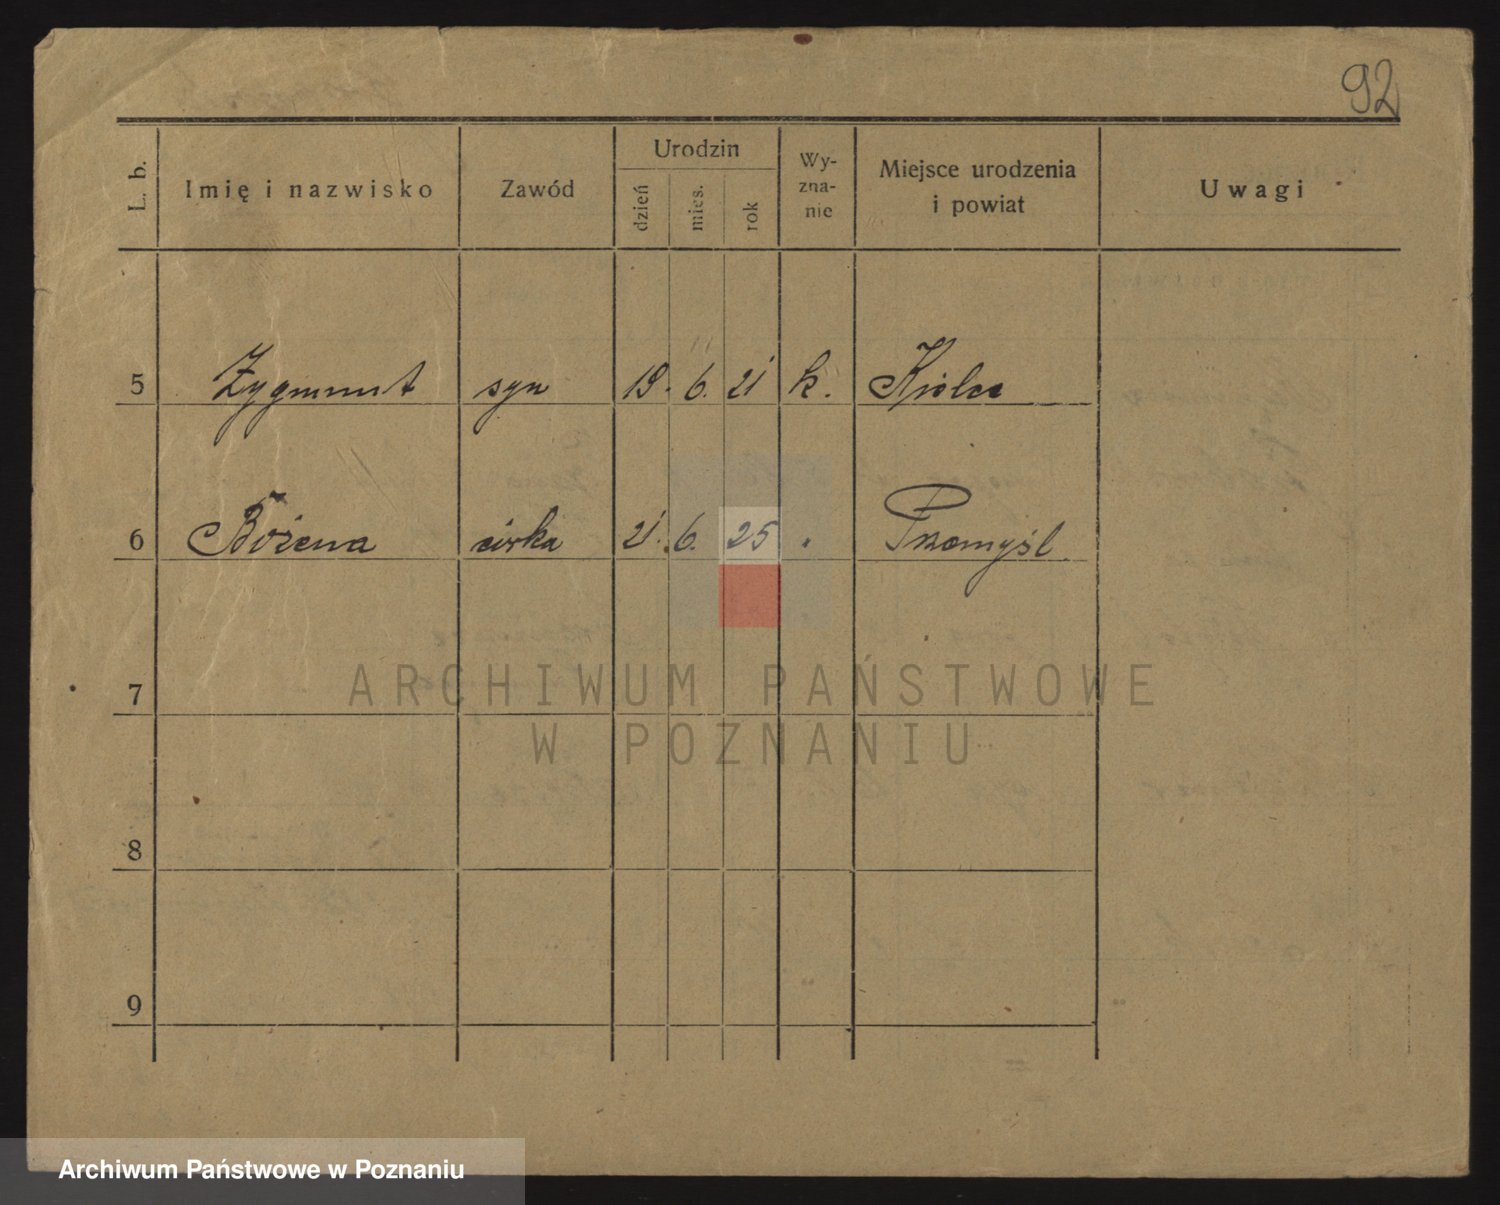 92
L. b.
Imię i nazwisko
Zawód
Urodzin
dzień
mies.
rok
Wy-
zna-
nie
Miejsce urodzenia
i powiat
Uwagi
5 Zygmunt syn 19. 6. 21 k. Kielce
6 Bożena córka 21. 6. 25 " Przemyśl
7
8
9
ARCHIWUM PAŃSTWOWE
W POZNANIU
Archiwum Państwowe w Poznaniu